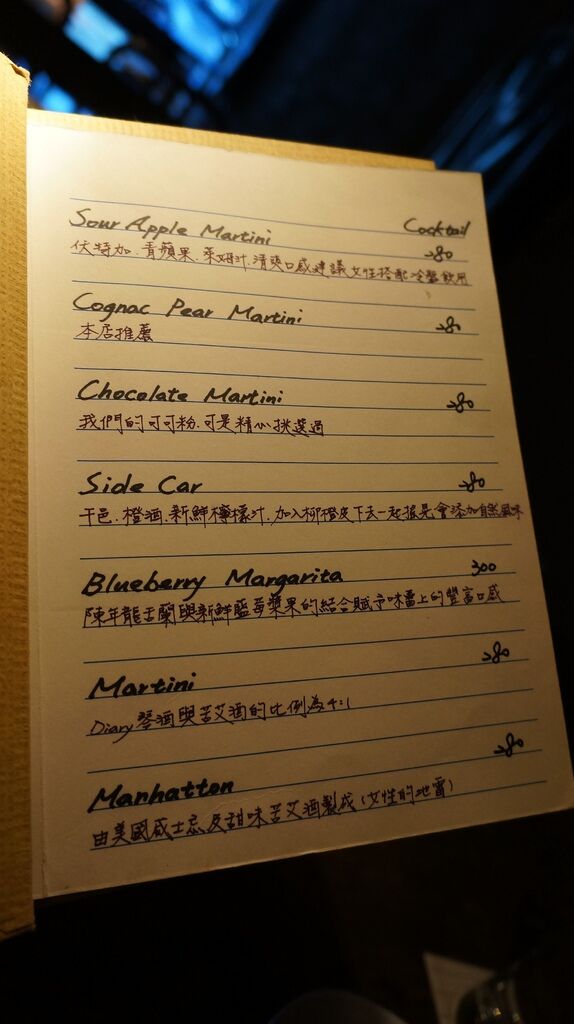 Cocktail
Sour Apple Martini 280
伏特加.青蘋果.萊姆汁.清爽口感建議女性搭配冷盤飲用
Cognac Pear Martini 280
本店推薦
Chocolate Martini 280
我們的可可粉.可是精心挑選過
Side Car 280
干邑.橙酒.新鮮檸檬汁.加入柳橙皮下去一起搖晃會添加自然風味
Blueberry Margarita 300
陳年龍舌蘭與新鮮藍莓漿果的結合賦予味蕾上的豐富口感
Martini 280
Diary 琴酒與苦艾酒的比例為4:1
Manhatton 280
由美國威士忌及甜味苦艾酒製成(女性的地雷)